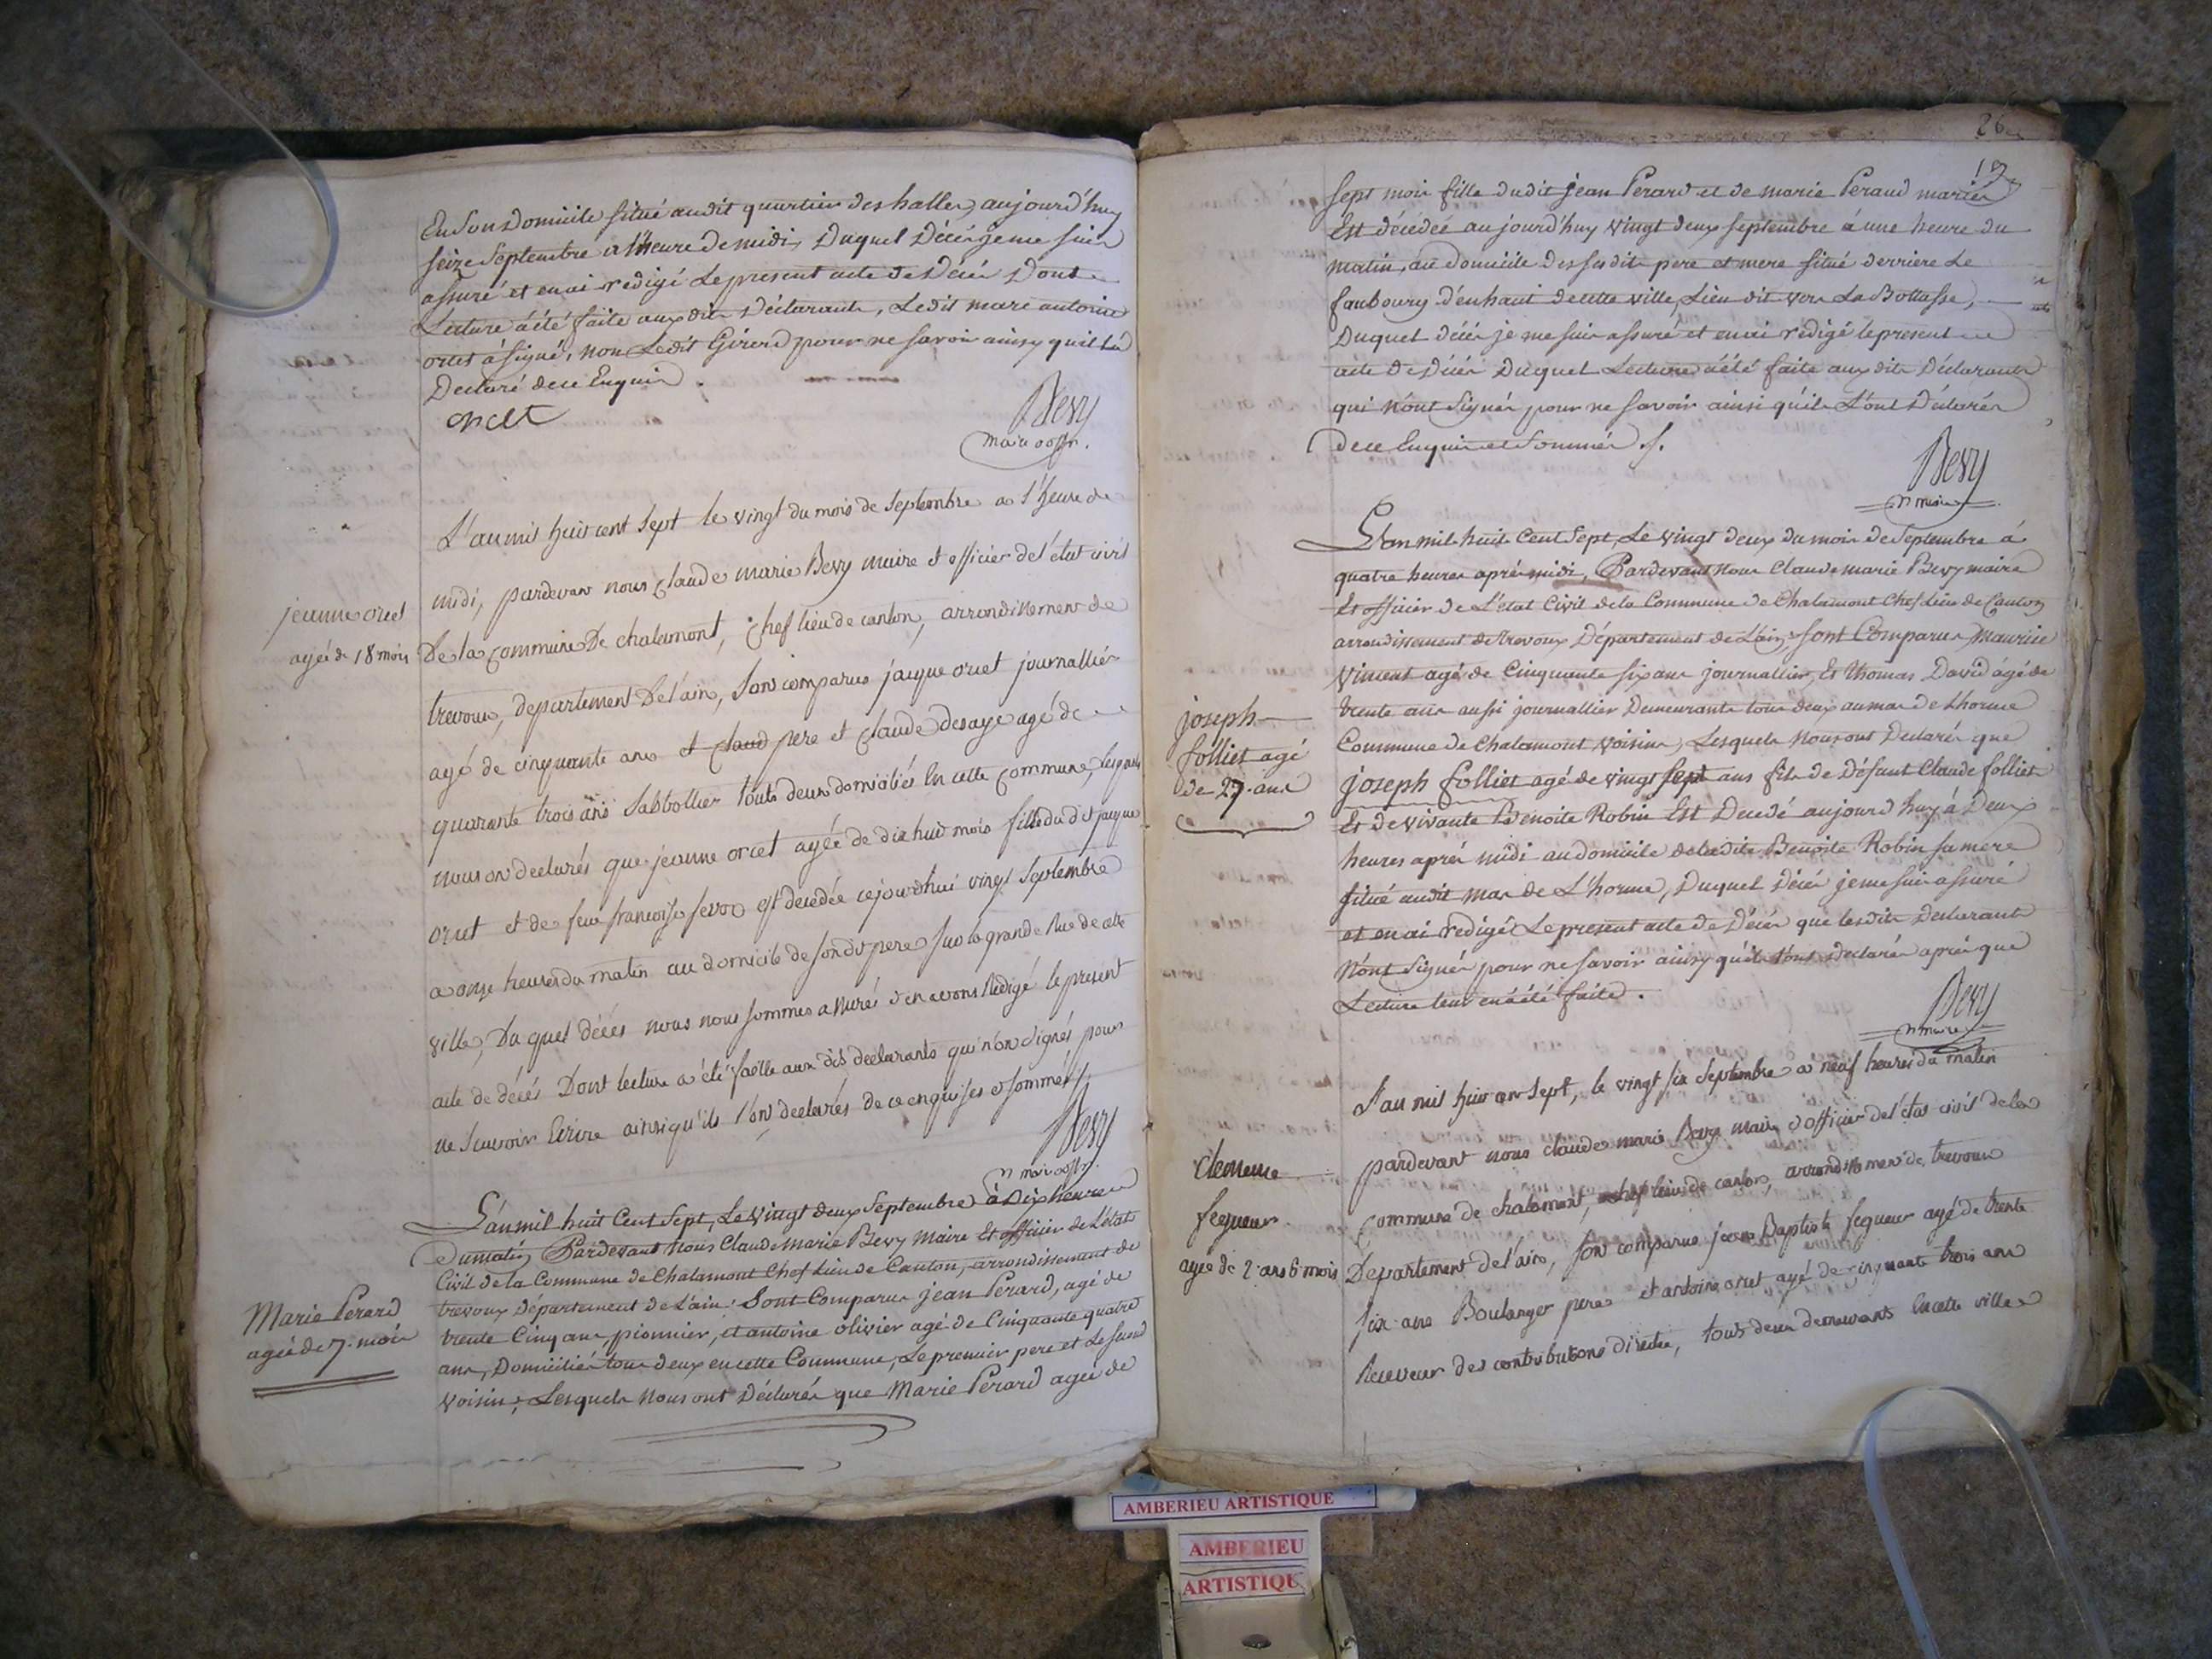 En Son Domicile situé audit quartier des halles, aujourd'huy
seize Septembre à l'heure de midi, Duquel Décès je me suis
assuré et en ai redigé Le present acte de Décés Dont
Lecture a été faite aux dits Déclarants, Ledit marc antoine
orcet à signé, non Ledit Girerd pour ne savoir ainsy qu'il L'a
Declaré de ce Enquis.
orcet
Bevy
maire
L'an mil huit cent sept le vingt du mois de Septembre a l'heure de
midi, pardevant nous Claude marie Bevy maire et officier de l'état civil
De la Commune De chalamont, Chef lieu de canton, arrondissement de
trevoux, departement De l'ain, sont comparus jacque orcet journallier
agé de cinquante ans et Claud pere et Claude desaye agé de
quarante trois ans Sabbottier touts deux domiciliés En cette Commune, Lesquels
nous ont declarés que jeanne orcet agée de dix huit mois fille du dit jacque
orcet et de feue francoise est decedée cejourdhui vingt Septembre
a onze heures du matin au domicile de son dit pere sur la grande Rue de cette
ville, Du quel décés nous nous sommes assurés et en avons Rédigé le present
acte de décés Dont lecture a été faitte aux dits declarants qui n'ont signés pour
ne Scavoir Ecrire ainsi qu'ils l'ont declarés de ce enquis et sommés
Bevy
maire
jeanne orcet
agée de 18 mois
L'an mil huit Cent Sept, Le Vingt deux Septembre à Dix heures
Du matin, Pardevant Nous Claude Marie Bevy Maire Et officier de L'état
Civil de la Commune de Chalamont Chef Lieu de Canton, arrondissement de
trevoux Département de L'ain; Sont Comparus jean Perard, agé de
trente Cinq ans, pionnier, et antoine olivier agé de Cinquante quatre
ans, Domiciliés tous deux en cette Commune, Le premier pere et Le second
Voisin, Lesquels Nous ont Déclarés que Marie Perard agée de
Marie Perard
agée de 7. mois
26
19
sept mois fille dudit jean Perard et de marie Peraud mariés
Est décédée aujourd'huy Vingt deux septembre à une heure du
matin, au domicile des susdits pere et mere situé derriere Le
faubourg d'enhaut de cette ville, Lieu dit vers La Bottasse,
Duquel décés je me suis assuré et en ai redigé le present
acte de Décés Duquel Lecture a été faite aux dits Déclarants
qui n'ont Signés pour ne savoir ainsi qu'ils L'ont Déclarés
de ce Enquis et Sommés.
Bevy
maire
L'an mil huit Cent Sept, Le Vingt deux du mois de Septembre à
quatre heures après midi, Pardevant Nous Claude marie Bevy maire
Et officier de L'état Civil de la Commune de Chalamont Chef Lieu de Canton
arrondissement de Trevoux Département de L'ain, sont Comparus Maurice
Vincent agé de Cinquante six ans journallier, Et Thomas David agé de
trente ans aussi journallier Demeurants tous deux au mas de Lhorme
Commune de Chalamont Voisins, Lesquels Nous ont Declarés que
joseph folliet agé de vingt sept ans fils de Défunt Claude folliet
Et de Vivante Benoite Robin Est Decedé aujourd'huy à Deux
heures après midi au domicile de ladite Benoite Robin sa mere
situé audit mas de L'horme, Duquel Décés je me suis assuré
et en ai redigé Le present acte de Décés que lesdits Declarants
N'ont Signés pour ne savoir ainsy qu'ils L'ont Declarés après que
Lecture leur en a été faite.
Bevy
maire
joseph
folliet agé
de 27. ans
L'an mil huit cent Sept, le vingt six Septembre a neuf heures du matin
pardevant nous Claude marie Bevy maire et officier de l'état civil de la
Commune de chalamont, chef lieu de canton, arrondissement de trevoux
Departement de l'ain, sont comparus jean Baptiste fequeur agé de trente
six ans Boulanger pere et antoine orcet agé de cinquante trois ans
Receveur des contributions directes, touts deux demeurants En cette ville
Clemence
fequeur
agée de 2 ans 6 mois
AMBERIEU ARTISTIQUE
AMBERIEU
ARTISTIQUE